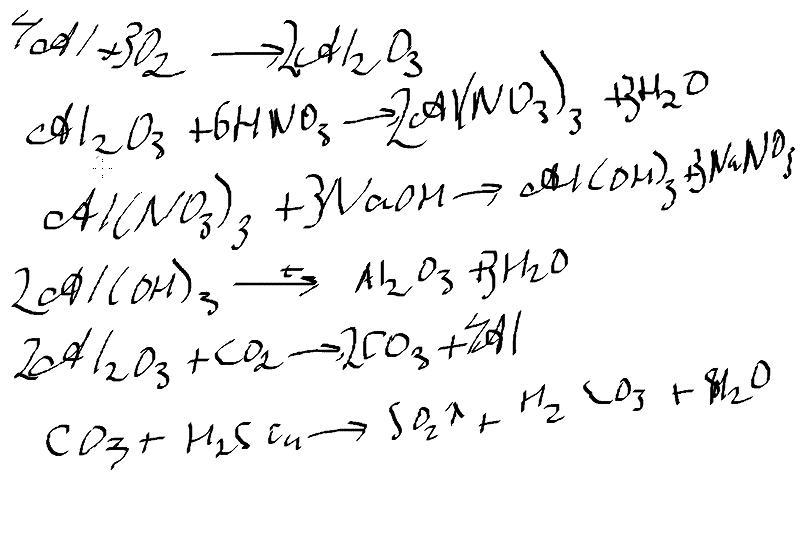 4Al+3O₂ → 2Al₂O₃
Al₂O₃ +6HNO₃ → 2Al(NO₃)₃ +3H₂O
Al(NO₃)₃ +3NaOH → Al(OH)₃+3NaNO₃
2Al(OH)₃ →ᵗ Al₂O₃ +3H₂O
2Al₂O₃ +CO₂ → 2CO₃ +4Al
CO₃ + → SO₂↑ + H₂CO₃ + H₂O